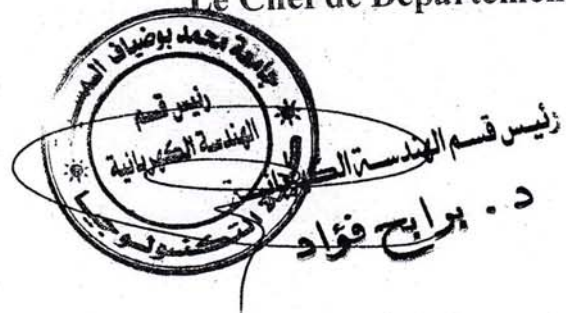 Le Chef de Département
جامعة محمد بوضياف
رئيس قسم
الهندسة الكهربائية
التكنولوجيا
رئيس قسم الهندسة الكهربائية
د. برابح فؤاد